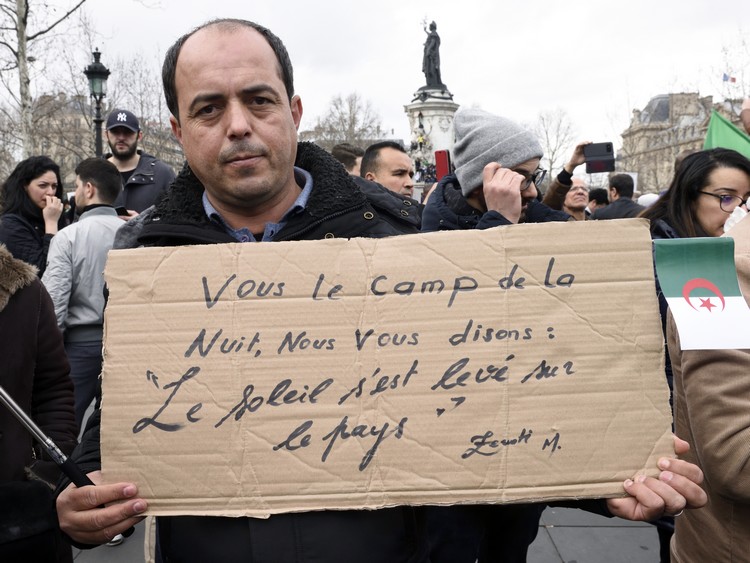 Vous le camp de la
Nuit, Nous Vous disons :
"Le soleil s'est levé sur
le pays"
M.